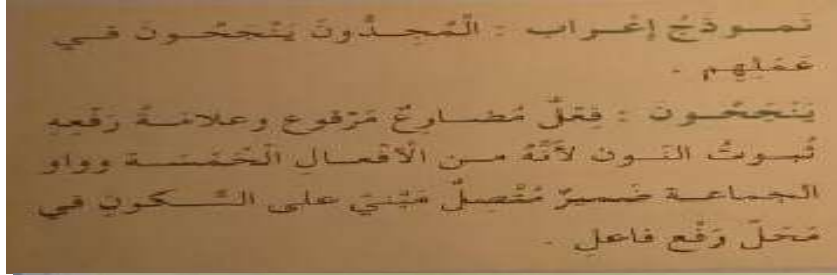 نَمـوذَجُ إعْـراب : الْمُجِـدُّونَ يَنْجَحُـونَ فـي
عَمَلِهِم .
يَنْجَحُـونَ : فِعْلٌ مُضـارِعٌ مَرْفوع وعلامَـةُ رَفْعِهِ
ثُبـوتُ النـون لأنَّهُ مـن الْأفْعـال الْخَمْسَـة وواو
الجماعـة ضَميرٌ مُتَّصِلٌ مَبْنيّ على السُّـكونِ في
مَحَلّ رَفْع فاعل .